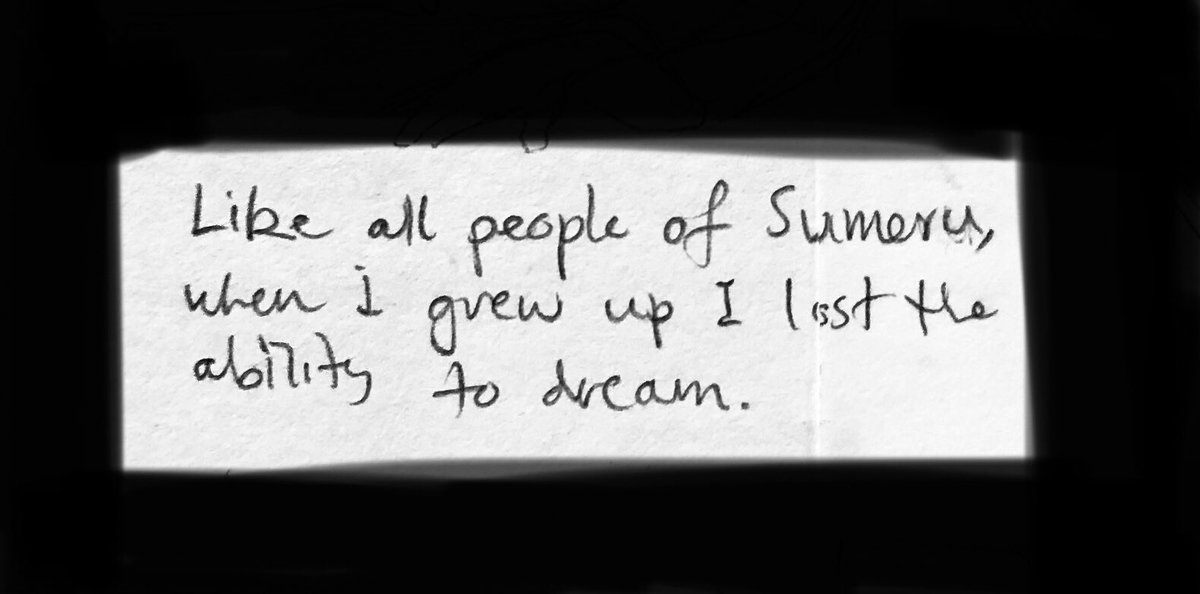 Like all people of Sumeru,
when i grew up I lost the
ability to dream.